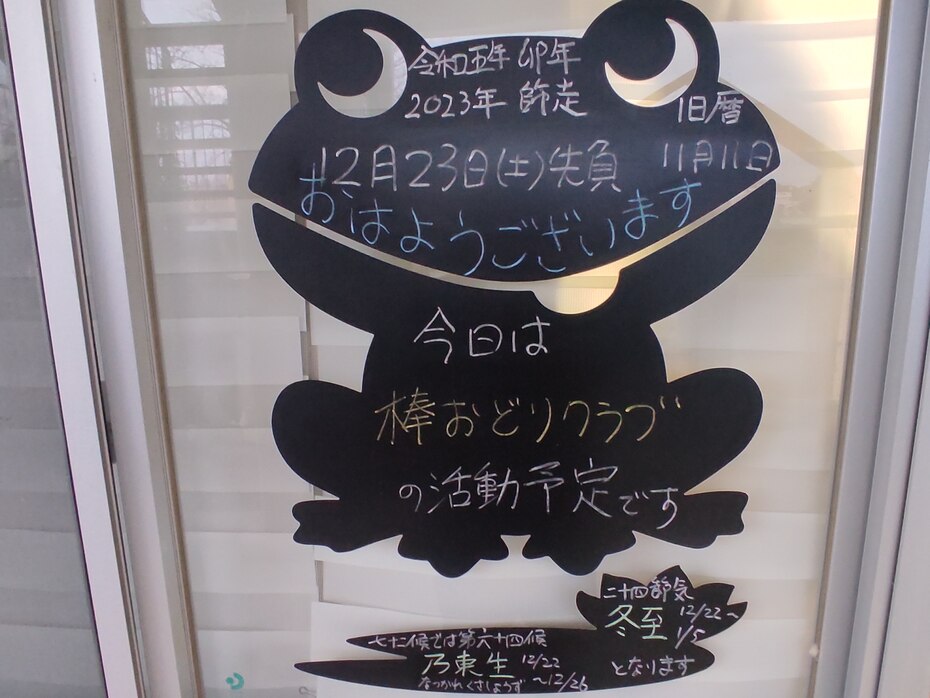 令和五年 卯年
2023年 師走
旧暦
11月11日
12月23日(土)先負
おはようございます
今日は
棒おどりクラブ
の活動予定です
二十四節気
冬至 12/22～
1/5
となります
七十二候では第六十四候
乃東生 12/22
～12/26
なつかれくさしょうず